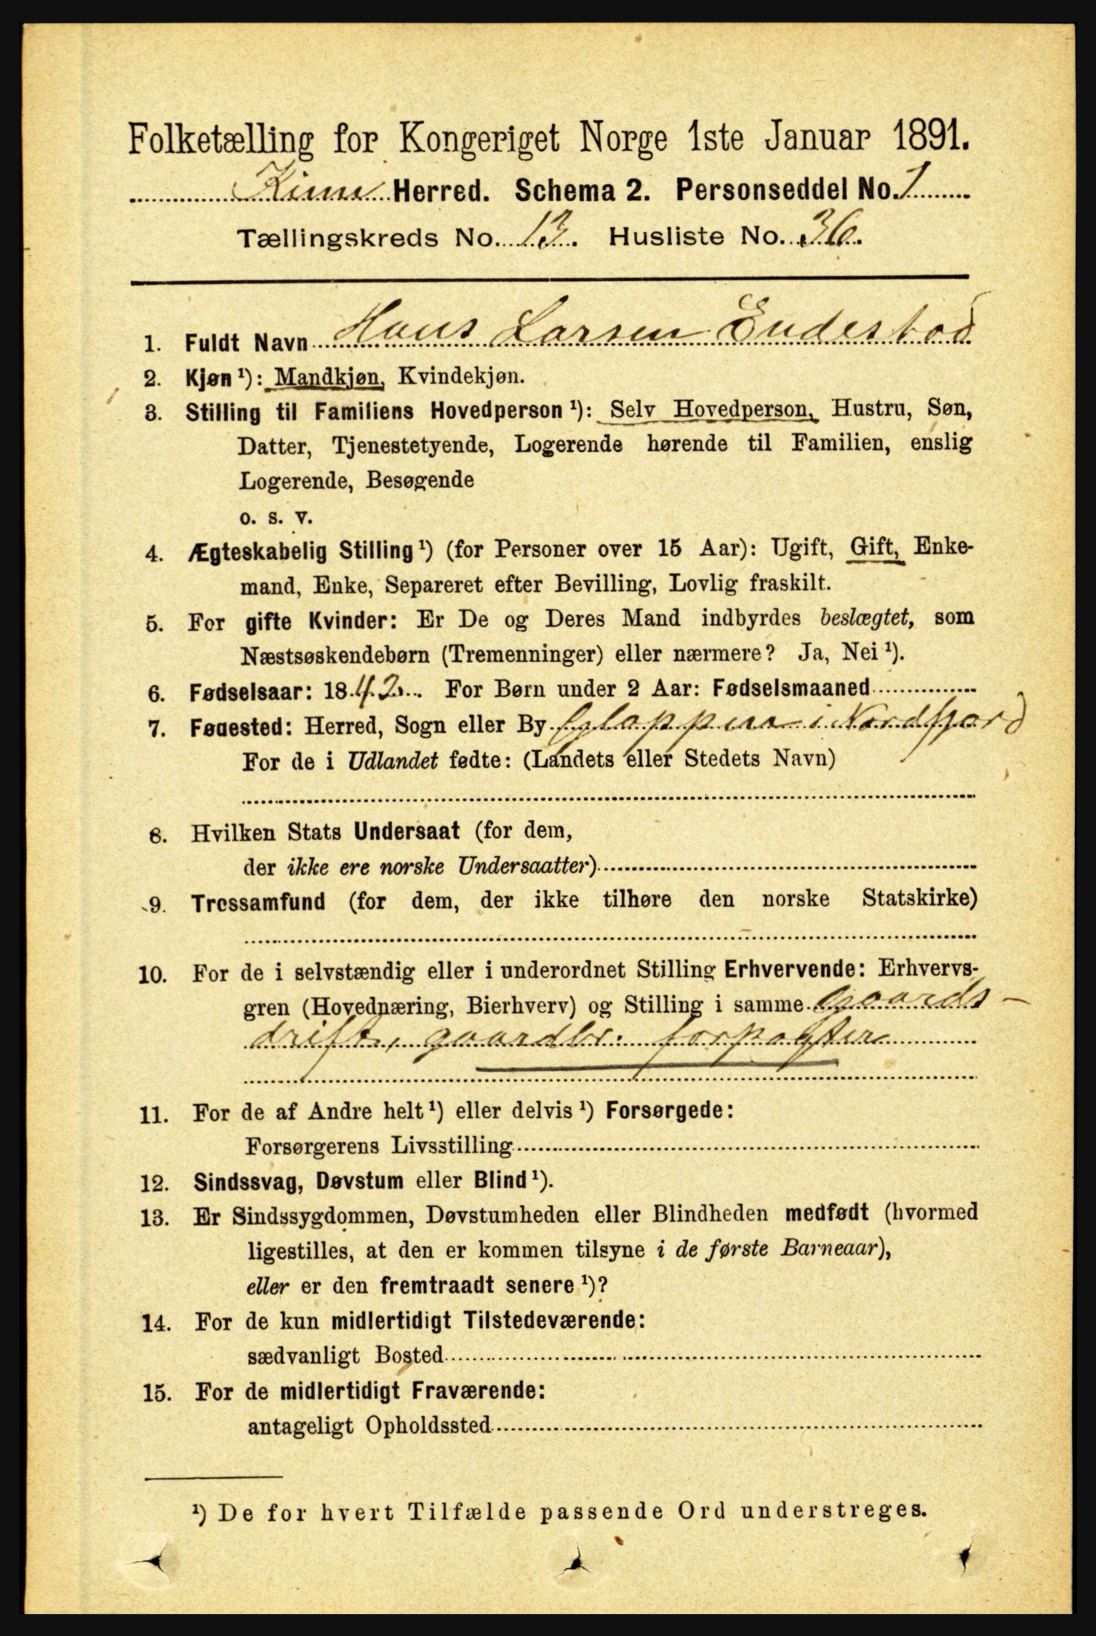 Folketælling for Kongeriget Norge 1ste Januar 1891.
Kinn Herred. Schema 2. Personseddel No. 1
Tællingskreds No. 13. Husliste No. 36.
1. Fuldt Navn Hans Larsen Endestad
2. Kjøn¹): Mandkjøn, Kvindekjøn.
3. Stilling til Familiens Hovedperson¹): Selv Hovedperson, Hustru, Søn,
Datter, Tjenestetyende, Logerende hørende til Familien, enslig
Logerende, Besøgende
o. s. v.
4. Ægteskabelig Stilling¹) (for Personer over 15 Aar): Ugift, Gift, Enke-
mand, Enke, Separeret efter Bevilling, Lovlig fraskilt.
5. For gifte Kvinder: Er De og Deres Mand indbyrdes beslægtet, som
Næstsøskendebørn (Tremenninger) eller nærmere? Ja, Nei¹).
6. Fødselsaar: 1842. For Børn under 2 Aar: Fødselsmaaned
7. Føaested: Herred, Sogn eller By Gloppen i Nordfjord
For de i Udlandet fødte: (Landets eller Stedets Navn)
8. Hvilken Stats Undersaat (for dem,
der ikke ere norske Undersaatter)
9. Trossamfund (for dem, der ikke tilhøre den norske Statskirke)
10. For de i selvstændig eller i underordnet Stilling Erhvervende: Erhvervs-
gren (Hovednæring, Bierhverv) og Stilling i samme Gaards-
drift, gaardbr. forpagter
11. For de af Andre helt¹) eller delvis¹) Forsørgede:
Forsørgerens Livsstilling
12. Sindssvag, Døvstum eller Blind¹).
13. Er Sindssygdommen, Døvstumheden eller Blindheden medfødt (hvormed
ligestilles, at den er kommen tilsyne i de første Barneaar),
eller er den fremtraadt senere¹)?
14. For de kun midlertidigt Tilstedeværende:
sædvanligt Bosted
15. For de midlertidigt Fraværende:
antageligt Opholdssted
¹) De for hvert Tilfælde passende Ord understreges.